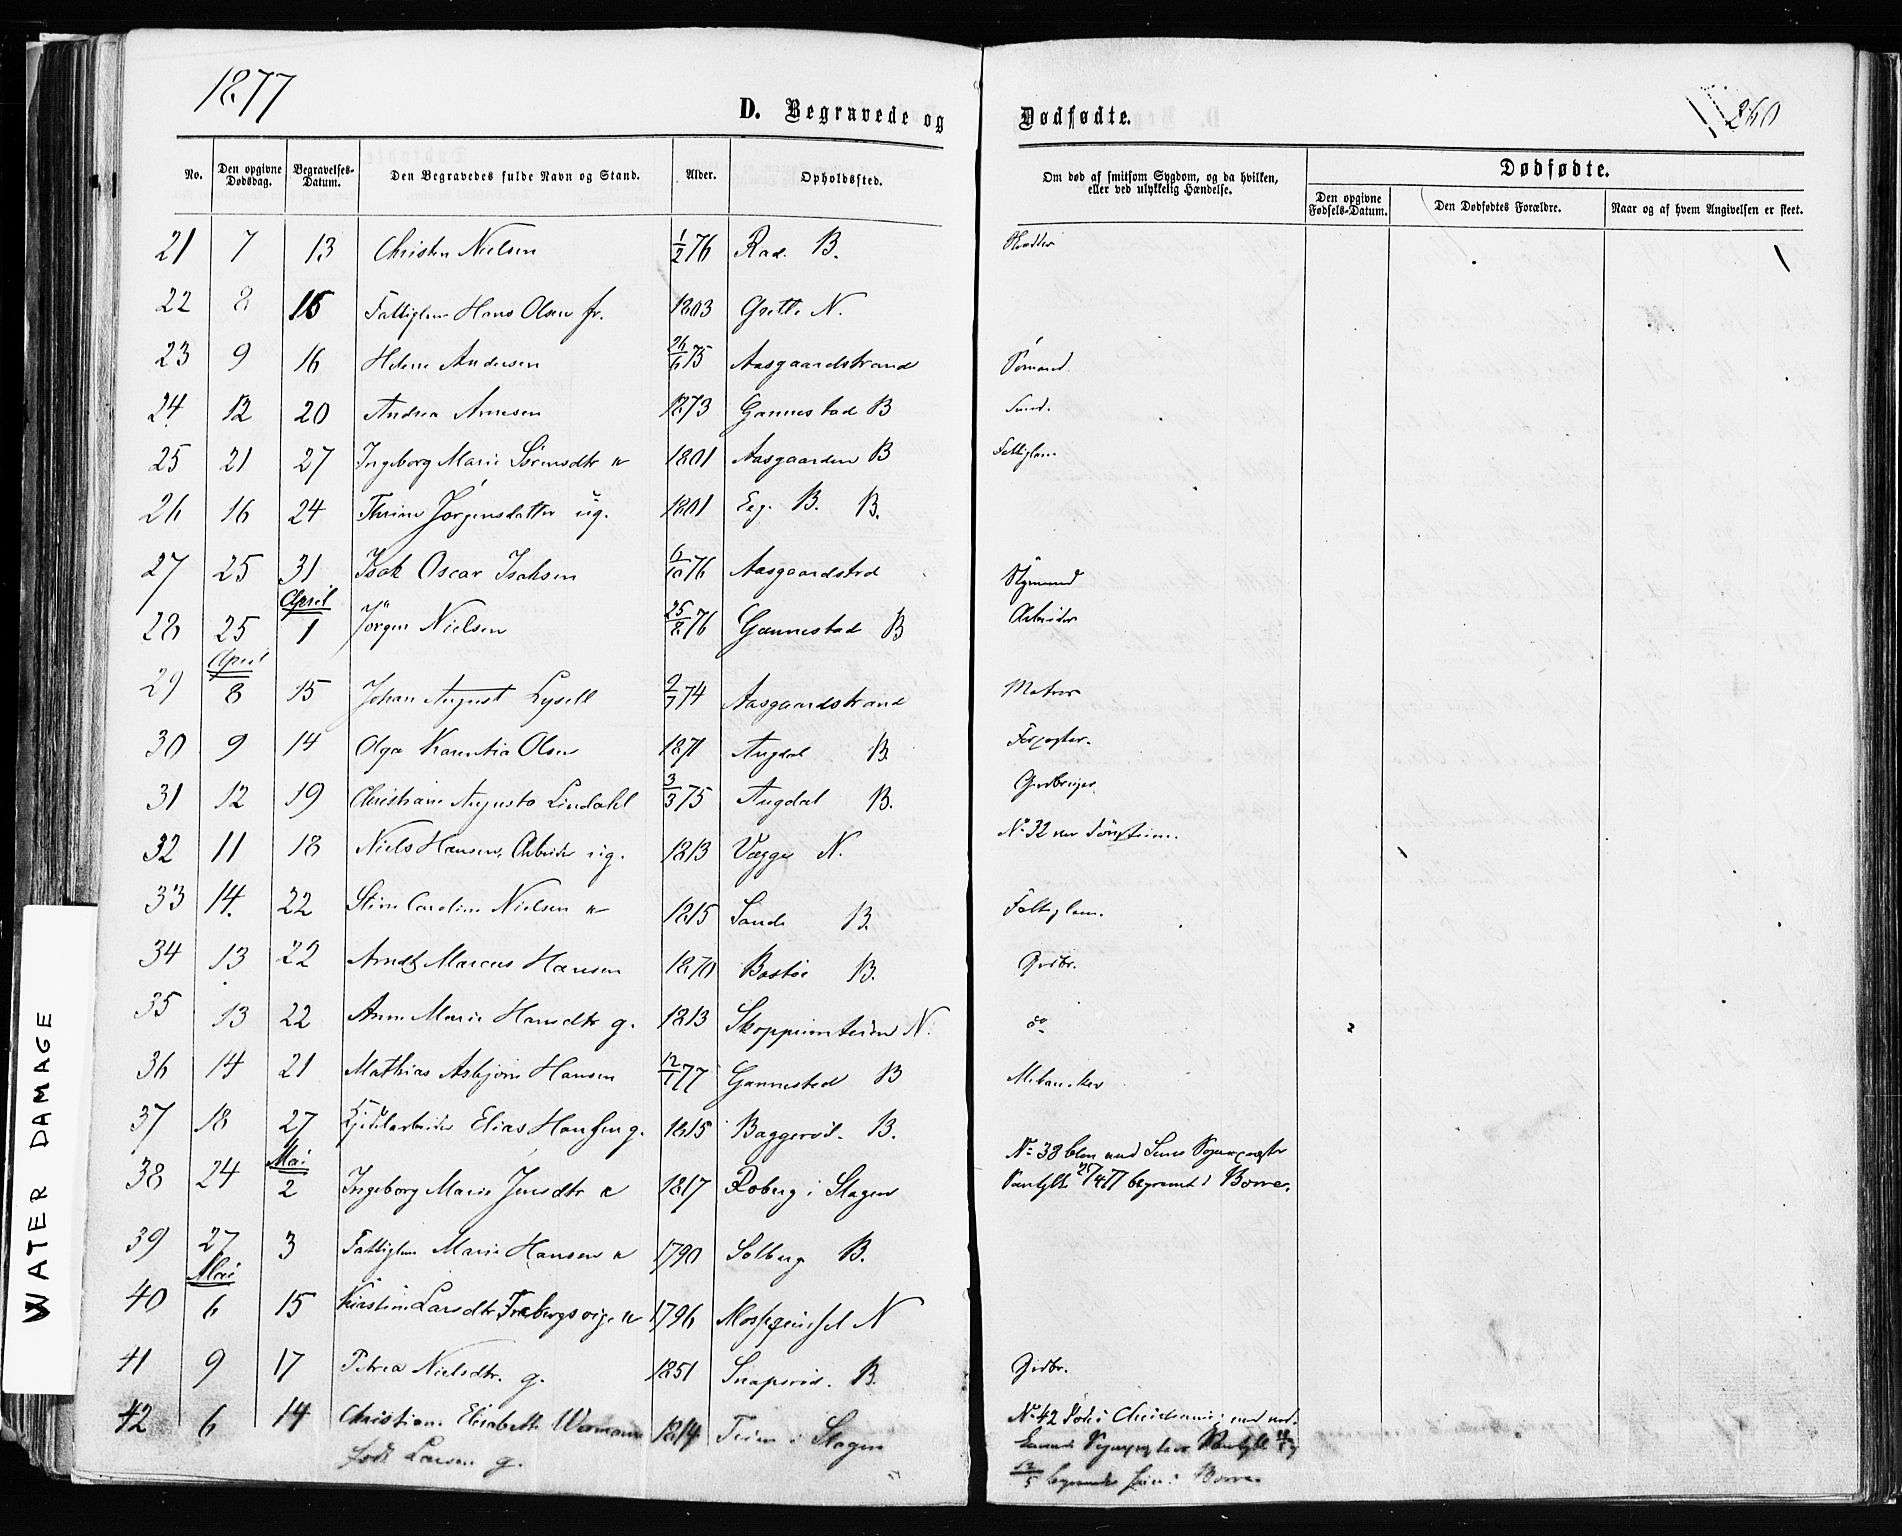 1877
D. Begravede og Dødfødte.
260
No. Den opgivne Dødsdag. Begravelses-Datum. Den Begravedes fulde Navn og Stand. Alder. Opholdssted. Om død af smitsom Sygdom, og da hvilken, eller ved ulykkelig Hændelse. Dødfødte.
Den opgivne Fødsels-Datum. Den Dødfødtes Forældre. Naar og af hvem Angivelsen er skeet.
21 7 13 Christen Nielsen 1/2 76 Rad. B.
22 8 15 Fattiglem Hans Olsen fr. 1803 N.
23 9 16 Helene Andersen 26/6 75 Aasgaardstrand Sømand
24 12 20 Andrea Arnesen 1873 Gannestad B Smed.
25 21 27 Ingeborg Marie Sørensdtr e 1801 Aasgaarden B Fattiglem
26 16 24 Thrine Jørgensdatter ug. 1801 B. B.
27 25 31 Isak Oscar Isaksen 6/10 76 Aasgaardstrd Styrmand
April
28 25 1 Jörgen Nielsen 25/8 76 Gannestad B Arbeider
April
29 8 15 Johan August Lysell 2/7 74 Aasgaardstrand Matros
30 9 14 Olga Karentia Olsen 1871 Augdal B.
31 12 19 Christiane Augusta Lindahl 3/3 75 Augdal B. Grdbruger
32 11 18 Niels Hansen, Arbeider ug. 1813 Vegge N. No 32 var
33 14. 22 Stine Caroline Nielsen e 1815 Sande B. Fattiglem.
34 13 22 Arndt Marcus Hansen 1870 Bastöe B. Grdbr.
35 13 22 Anne Marie Hansdtr g. 1813 Skoppumteien N. do
36 14 21 Mathias Asbjörn Hansen 12/1 77 Gannestad B
37 18 27 Elias Hansen g. 1815 Baggeröd. B.
Mai
38 24 2 Ingeborg Marie Jensdtr e 1817 Roberg i Slagen No 38 blev
begravet i Borre.
39 27 3 Fattiglem Marie Hansen e 1790 Solberg B.
Mai
40 6 15 Kirstine Larsdtr Frebergsvig. e 1796 N
41 9 17 Petrea Nielsdtr. g. 1851 Snapsröd. B. Grdbr.
42 6 14 Christiane Elisabeth 1814 Teien i Slagen No 42
född Larsen g. 12/5 i Borre.
WATER DAMAGE